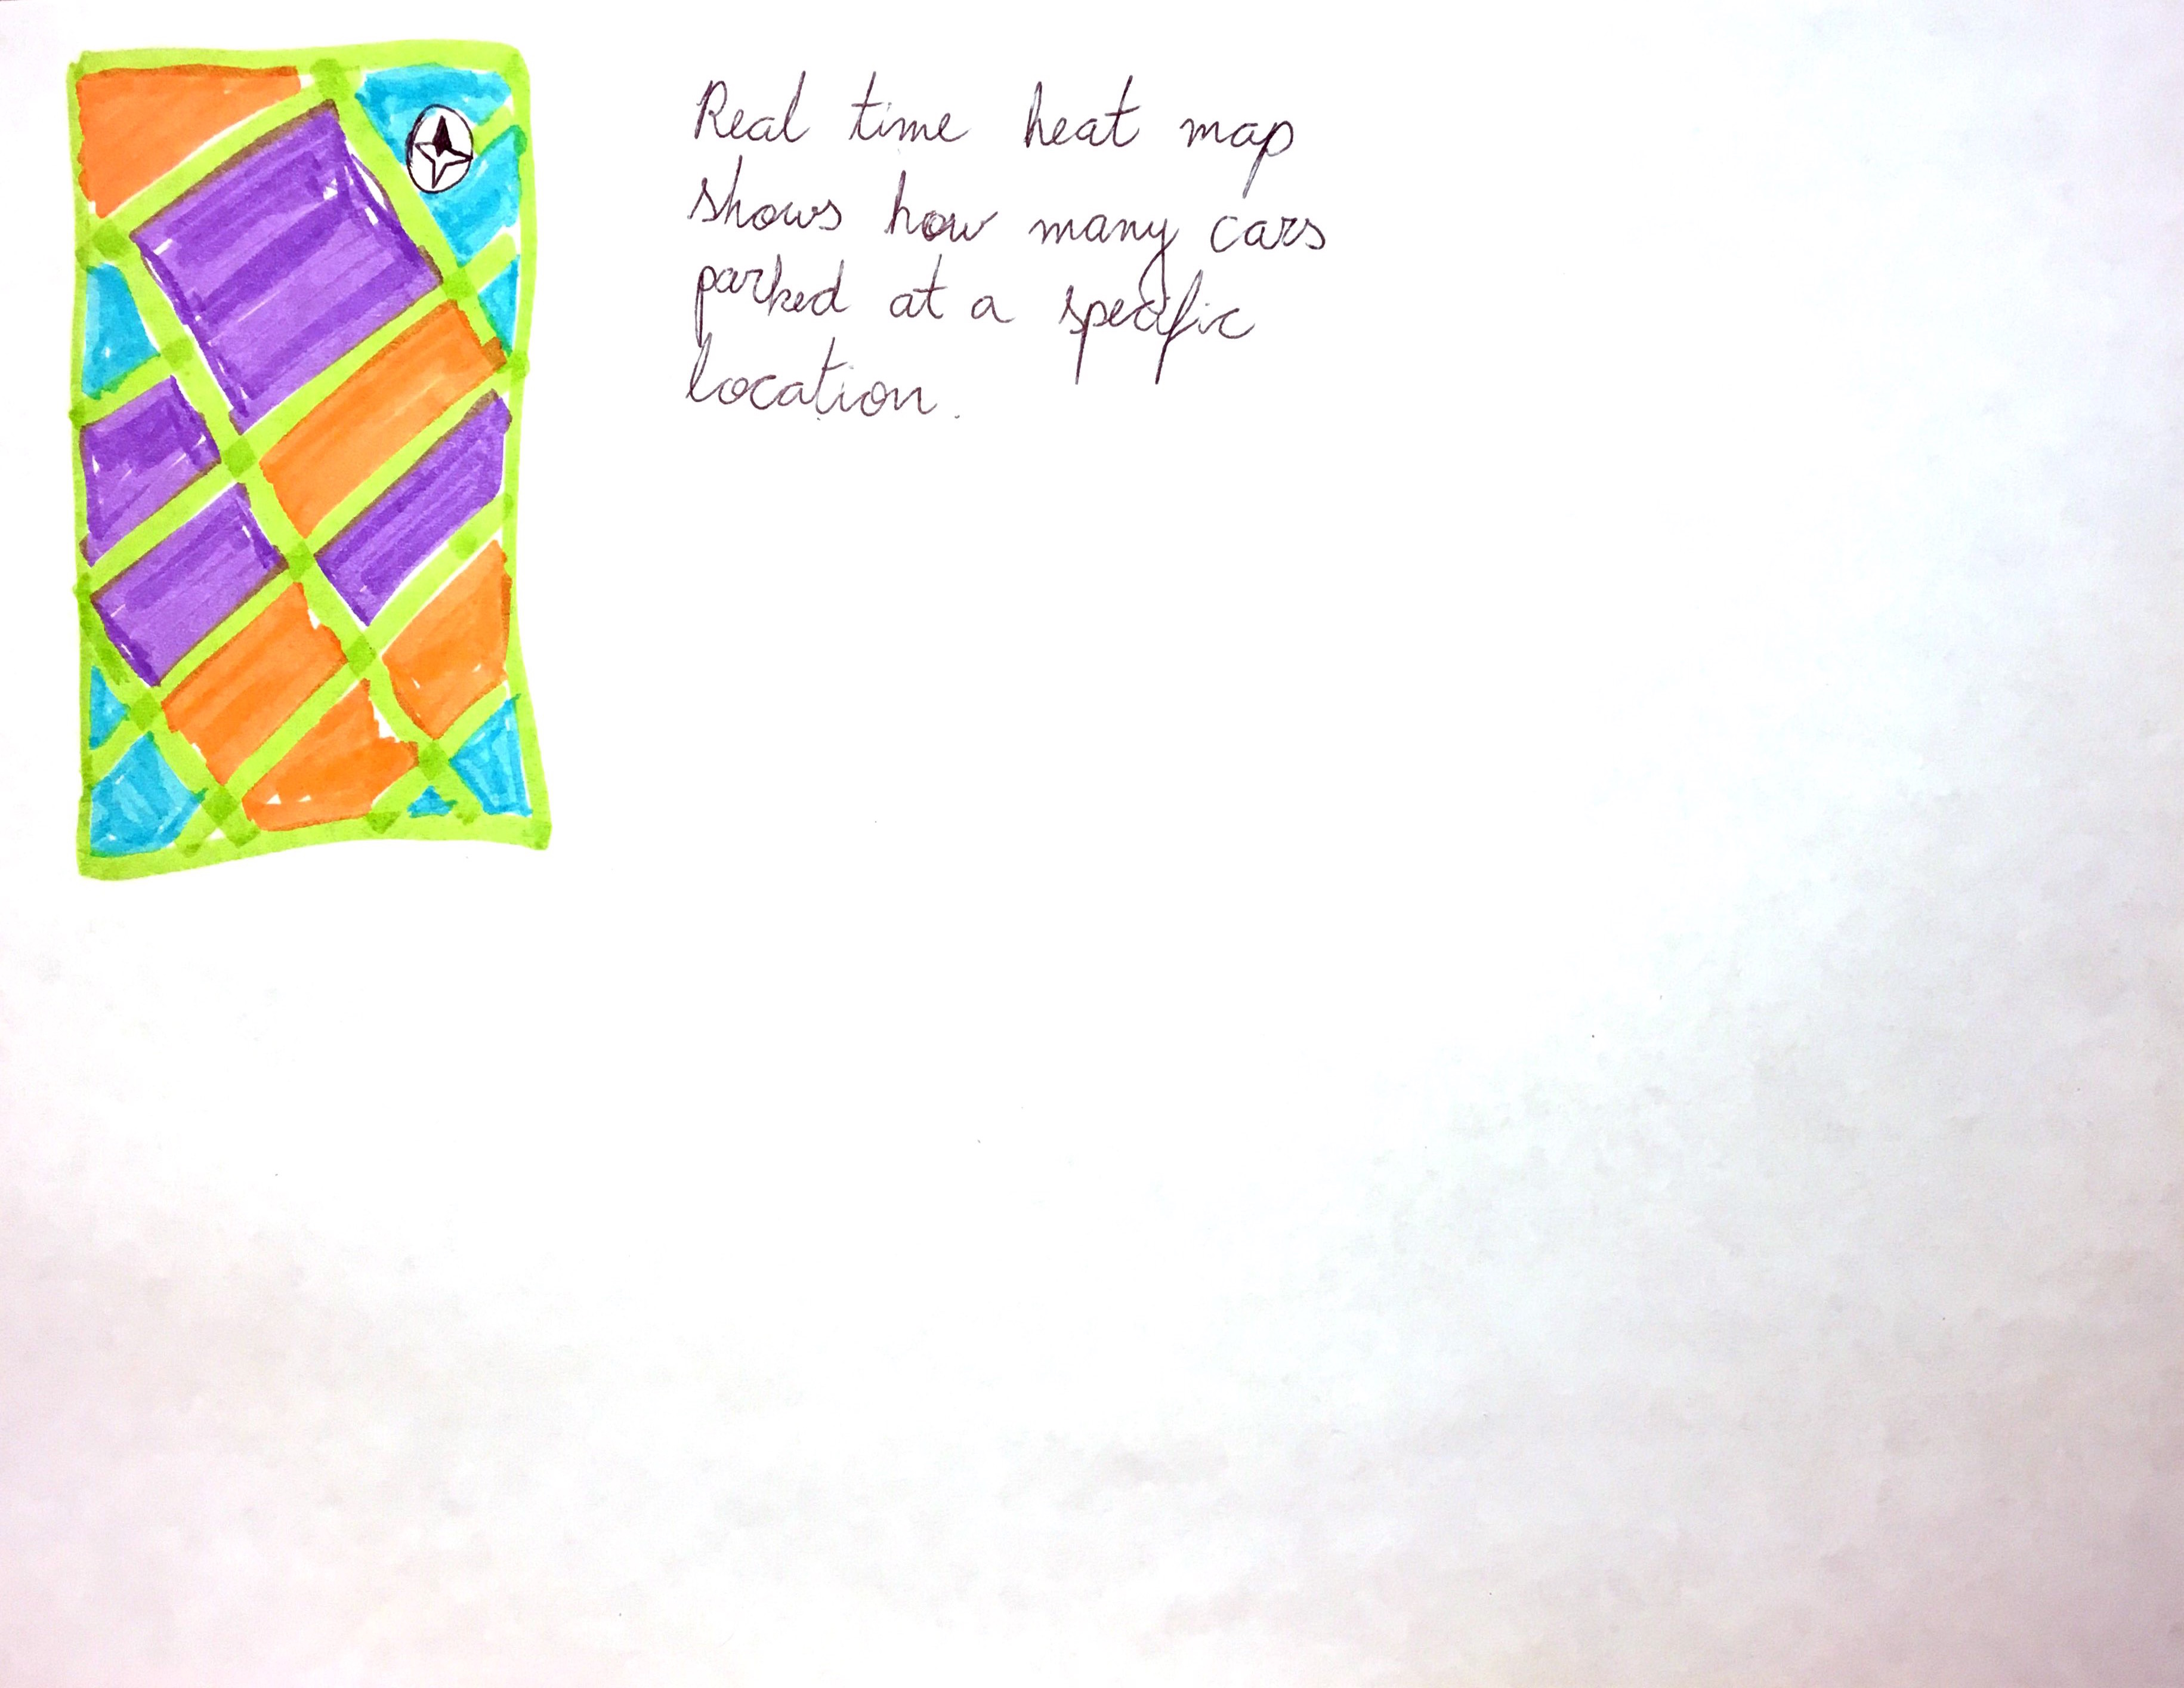 Real time heat map
shows how many cars
parked at a specific
location.